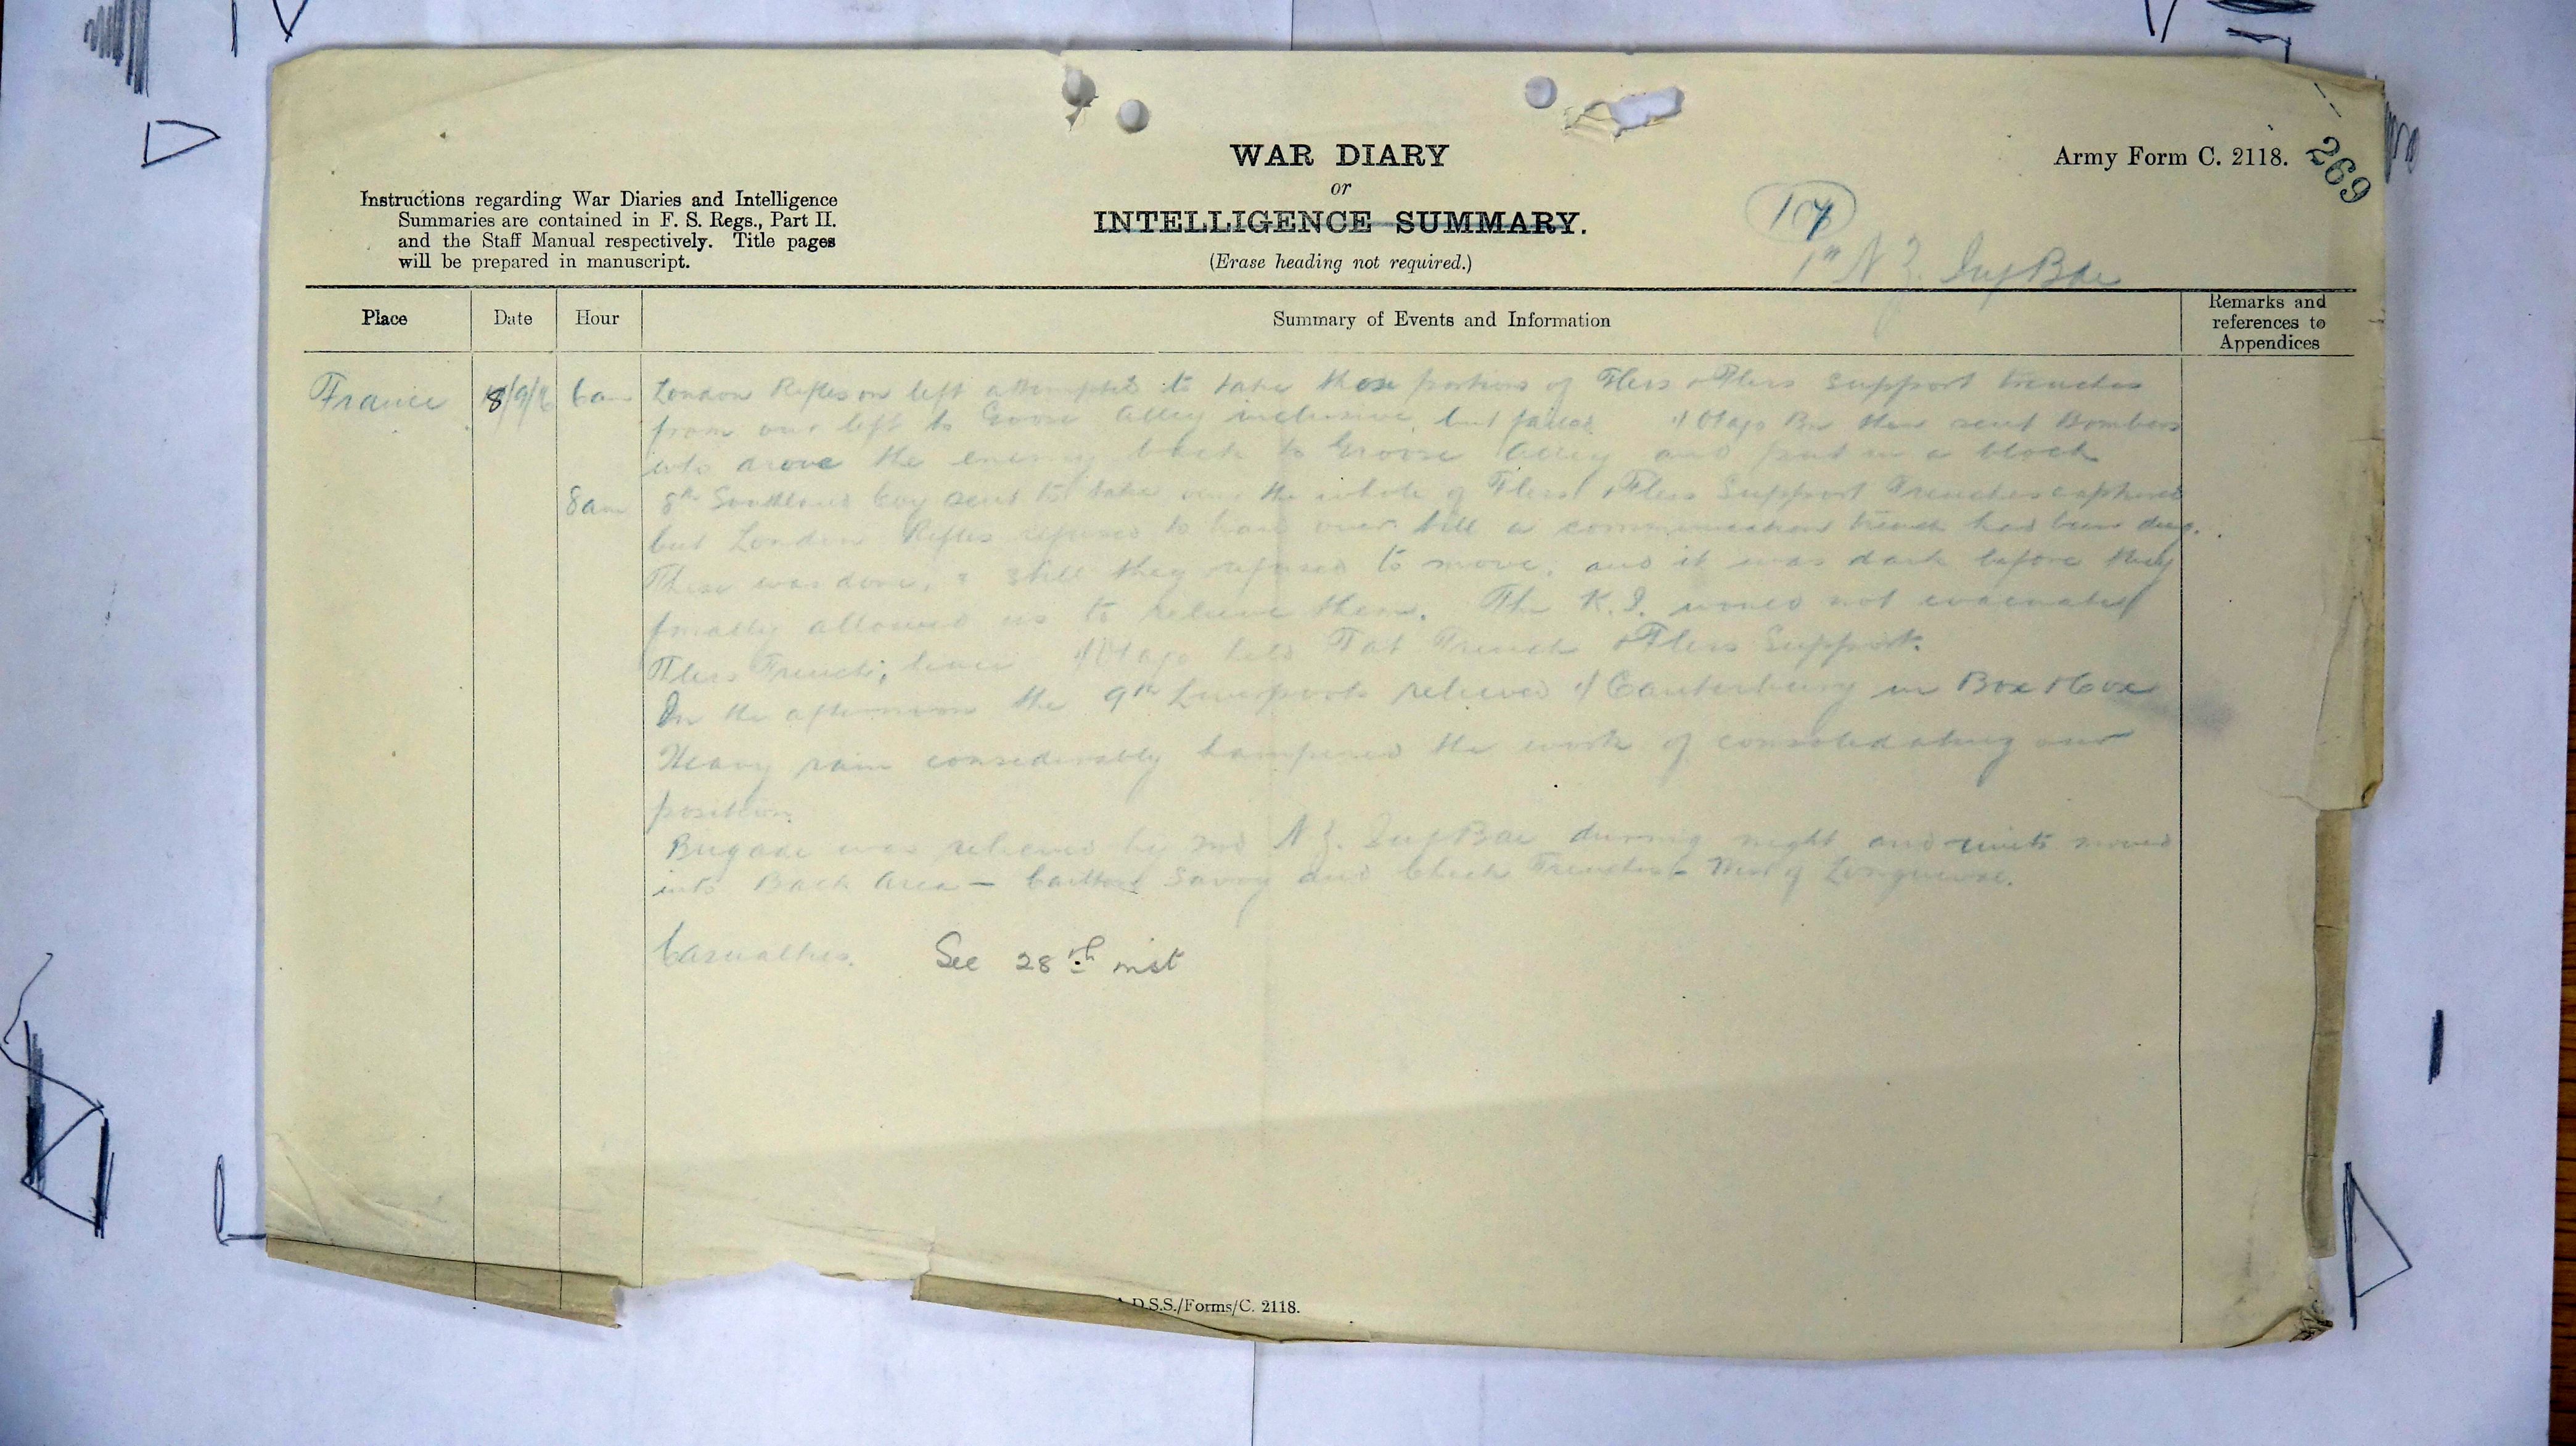 WAR DIARY
or
INTELLIGENCE SUMMARY.
(Erase heading not required.)
Army Form C. 2118.
269
Instructions regarding War Diaries and Intelligence
Summaries are contained in F. S. Regs., Part II.
and the Staff Manual respectively. Title pages
will be prepared in manuscript.
17
1st N Z. Inf Bde
Place Date Hour Summary of Events and Information Remarks and
references to
Appendices
France 18/9/16 6am London Rifles on left attempted to take those portions of Flers & Flers Support trenches
from our left to Goose Alley inclusive, but failed. 1/Otago Bn then sent Bombers
who drove the enemy back to Goose Alley and put in a block
8am 8th Southland Coy sent to take over the whole of Flers & Flers Support Trenches captured
but London Rifles refused to hand over till a communication trench had been dug.
This was done, & still they refused to move, and it was dark before they
finally allowed us to relieve them. The would not evacuate
Flers Trench; hence 1/Otago held Fat Trench & Flers Support.
In the afternoon the 9th Liverpools relieved 1/Canterbury in Box & Cox
Heavy rain considerably hampered the work of consolidating our
position.
Brigade was relieved by 2nd N Z. Inf Bde during night and units moved
into Back Area — Carlton Savoy and Check Trenches West of Longueval.
Casualties. See 28th inst
A.D.S.S./Forms/C. 2118.